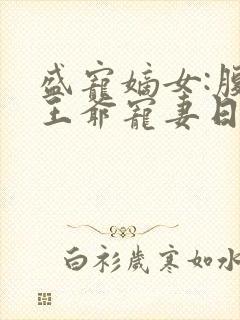 盛寵嫡女:腹
王爺寵妻日
白衫歲寒如水